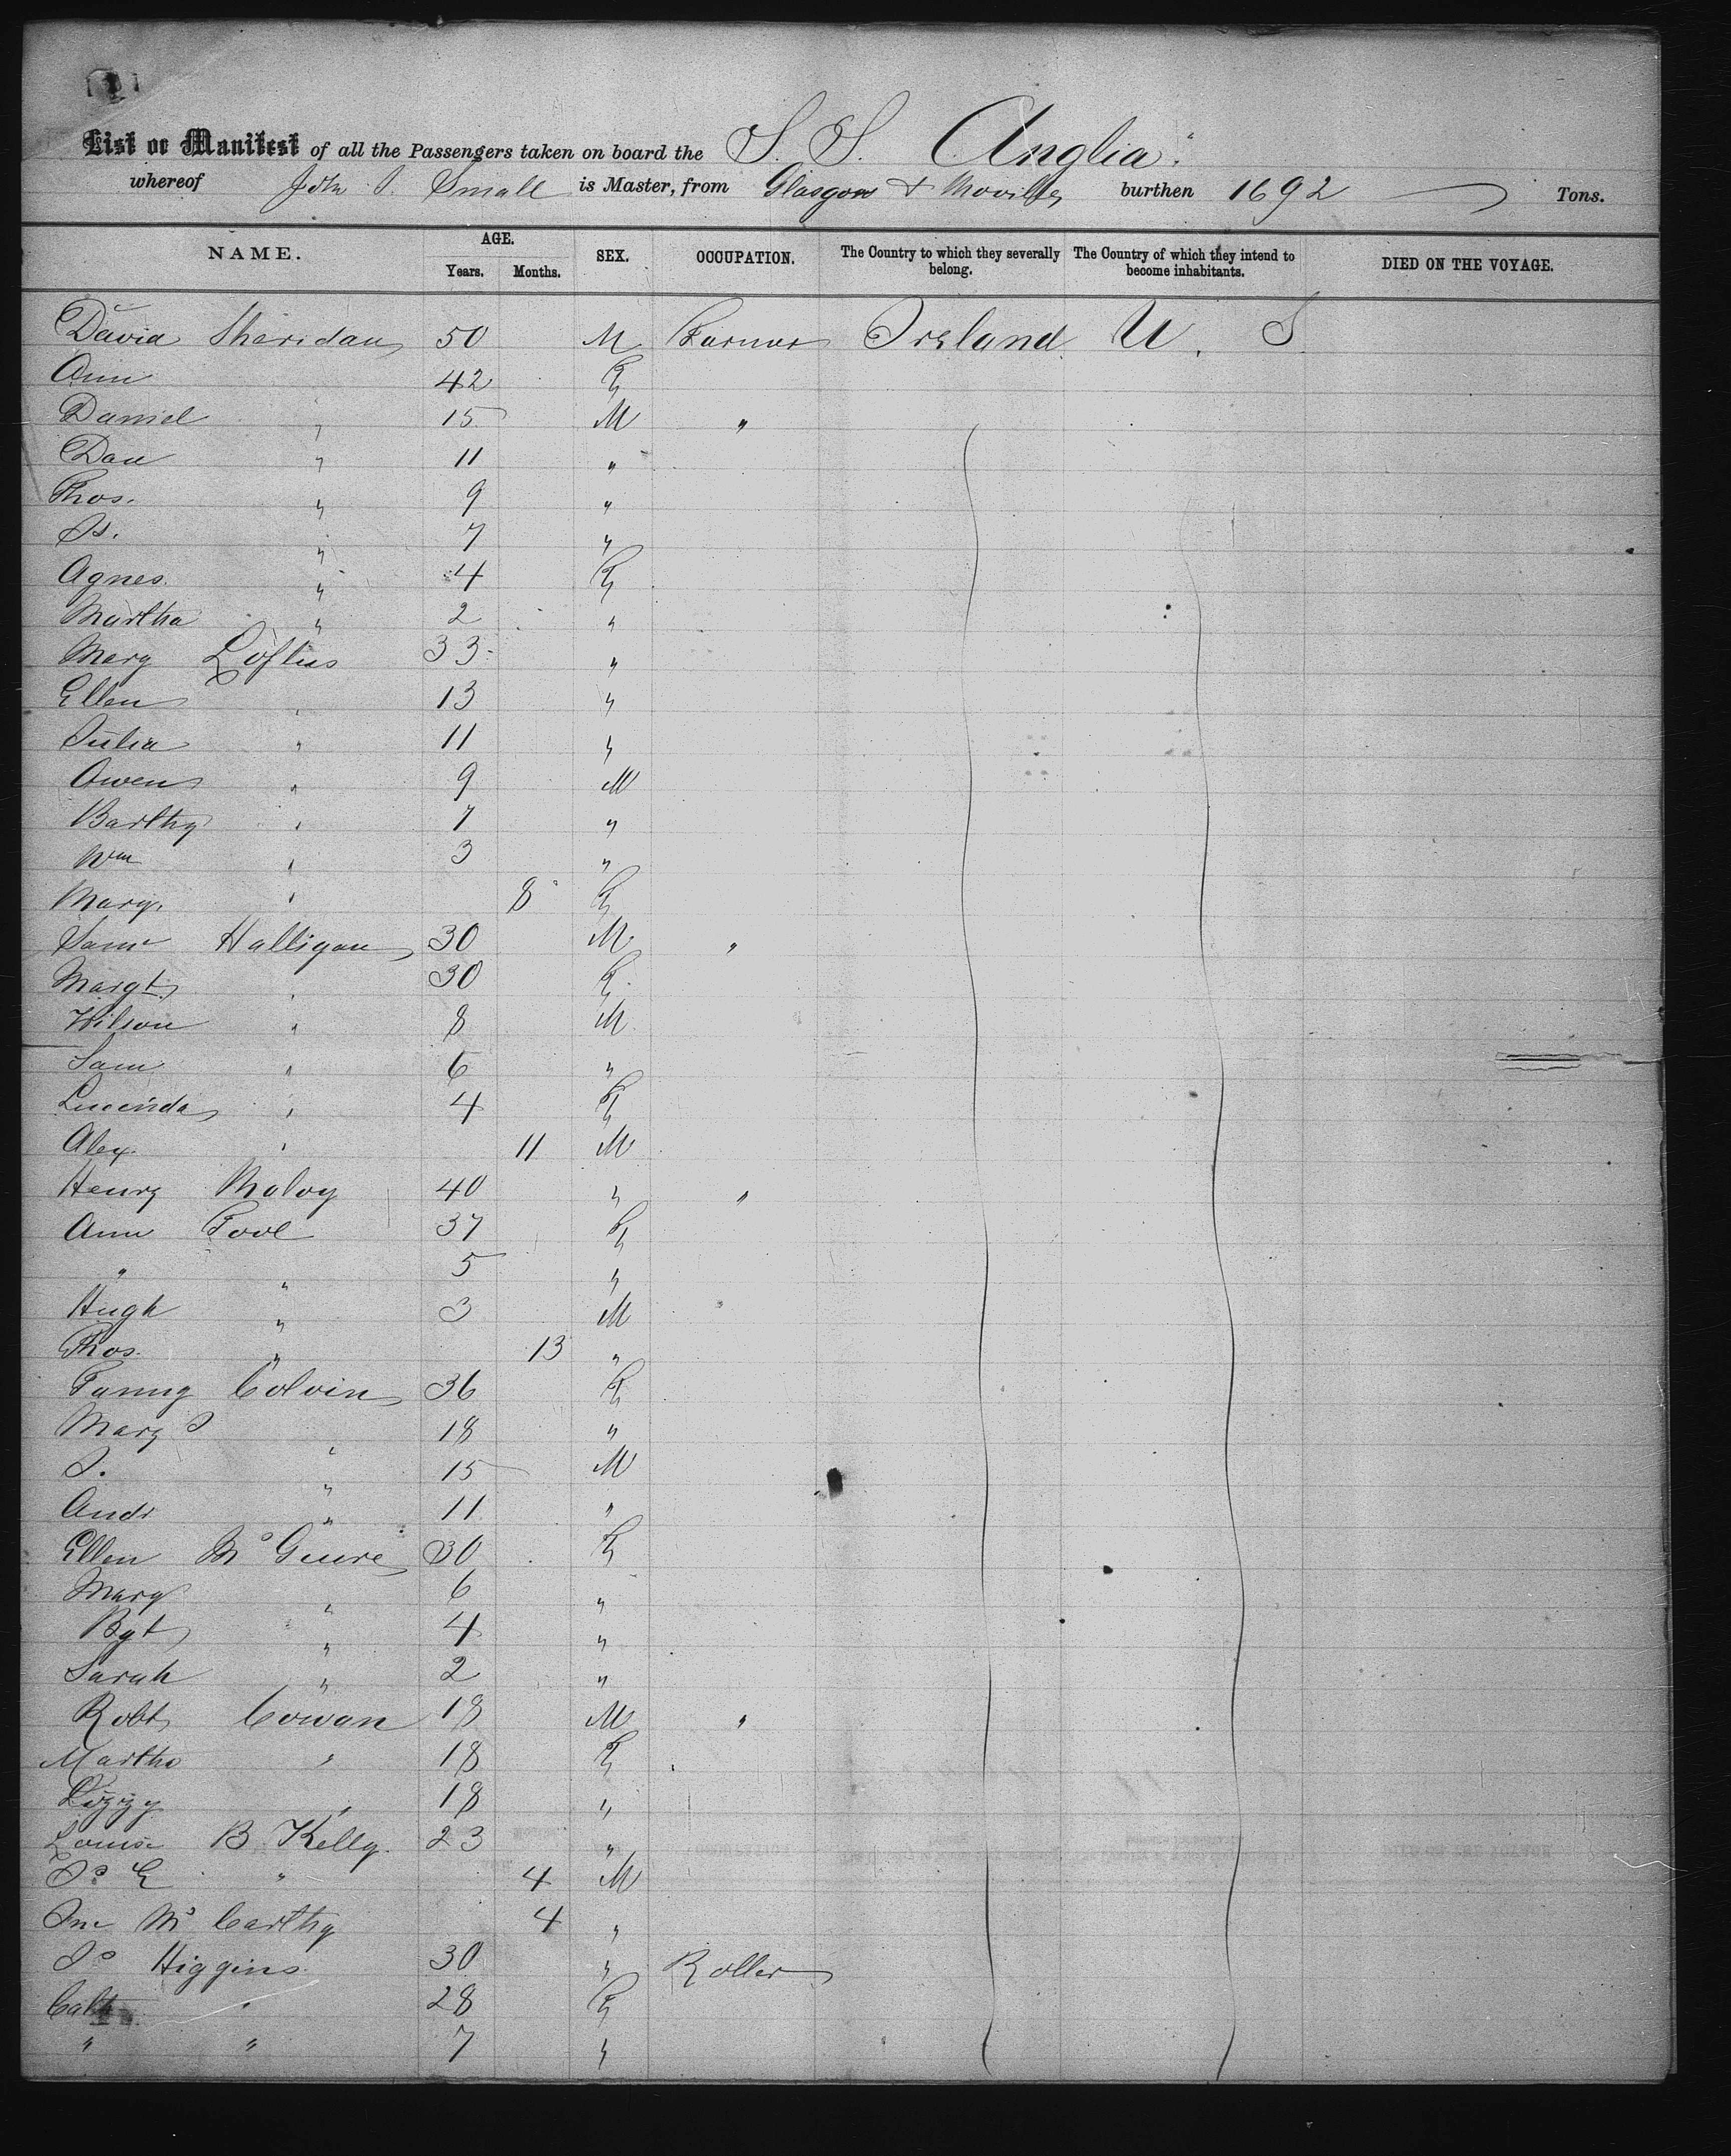 List or Manifest of all the Passengers taken on board the S. S. Anglia
whereof John S. Small is Master, from Glasgow & Moville, burthen 1692 Tons.
NAME. AGE. Years. Months. SEX. OCCUPATION. The Country to which they severally belong. The Country of which they intend to become inhabitants. DIED ON THE VOYAGE.
David Sheridan 50 M Farmer Ireland U. S.
Ann 42 F
Daniel " 15 M "
Dan " 11 "
Thos. " 9 "
Js. " 7 "
Agnes " 4 F
Martha " 2 "
Mary Loftus 33 "
Ellen " 13 "
Julia " 11 "
Owen " 9 M
Barthy " 7 "
Wm " 3 "
Mary " 8 F
Saml Halligan 30 M "
Margt " 30 F
Wilson " 8 M
Sam " 6 "
Lucinda " 4 F
Alex. " 11 M
Henry Moloy 40 " "
Ann Tool 37 F
" " 5 "
Hugh " 3 M
Thos. " 13 "
Fanny Colvin 36 F
Mary J " 18 "
J. " 15 M
Andr " 11 "
Ellen McGuire 30 F
Mary " 6 "
Bgt " 4 "
Sarah " 2 "
Robt Cowan 18 M "
Martha " 18 F
Lizzy " 18 "
Louisa B Kelly 23 "
Js E " 4 M
Jno McCarthy 4 "
Js Higgins 30 " Roller
Cath " 28 F
" " 7 "